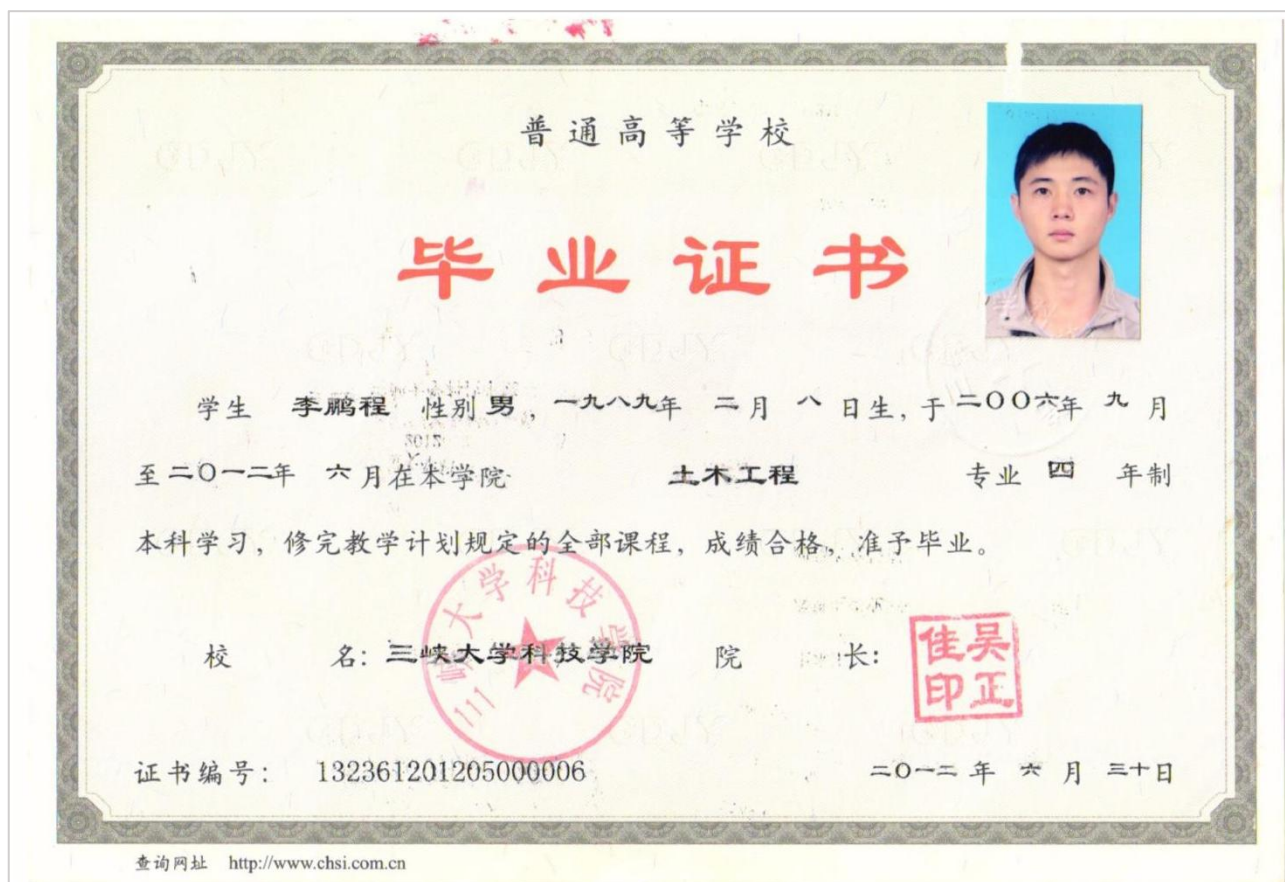 普通高等学校
毕业证书
学生 李鹏程 性别 男，一九八九年 二月 八日生，于二〇〇六年 九月
至二〇一二年 六月在本学院 土木工程 专业 四 年制
本科学习，修完教学计划规定的全部课程，成绩合格，准予毕业。
校 名：三峡大学科技学院 院 长：
三峡大学科技学院
吴正佳印
证书编号： 132361201205000006 二〇一二年 六月 三十日
查询网址 http://www.chsi.com.cn